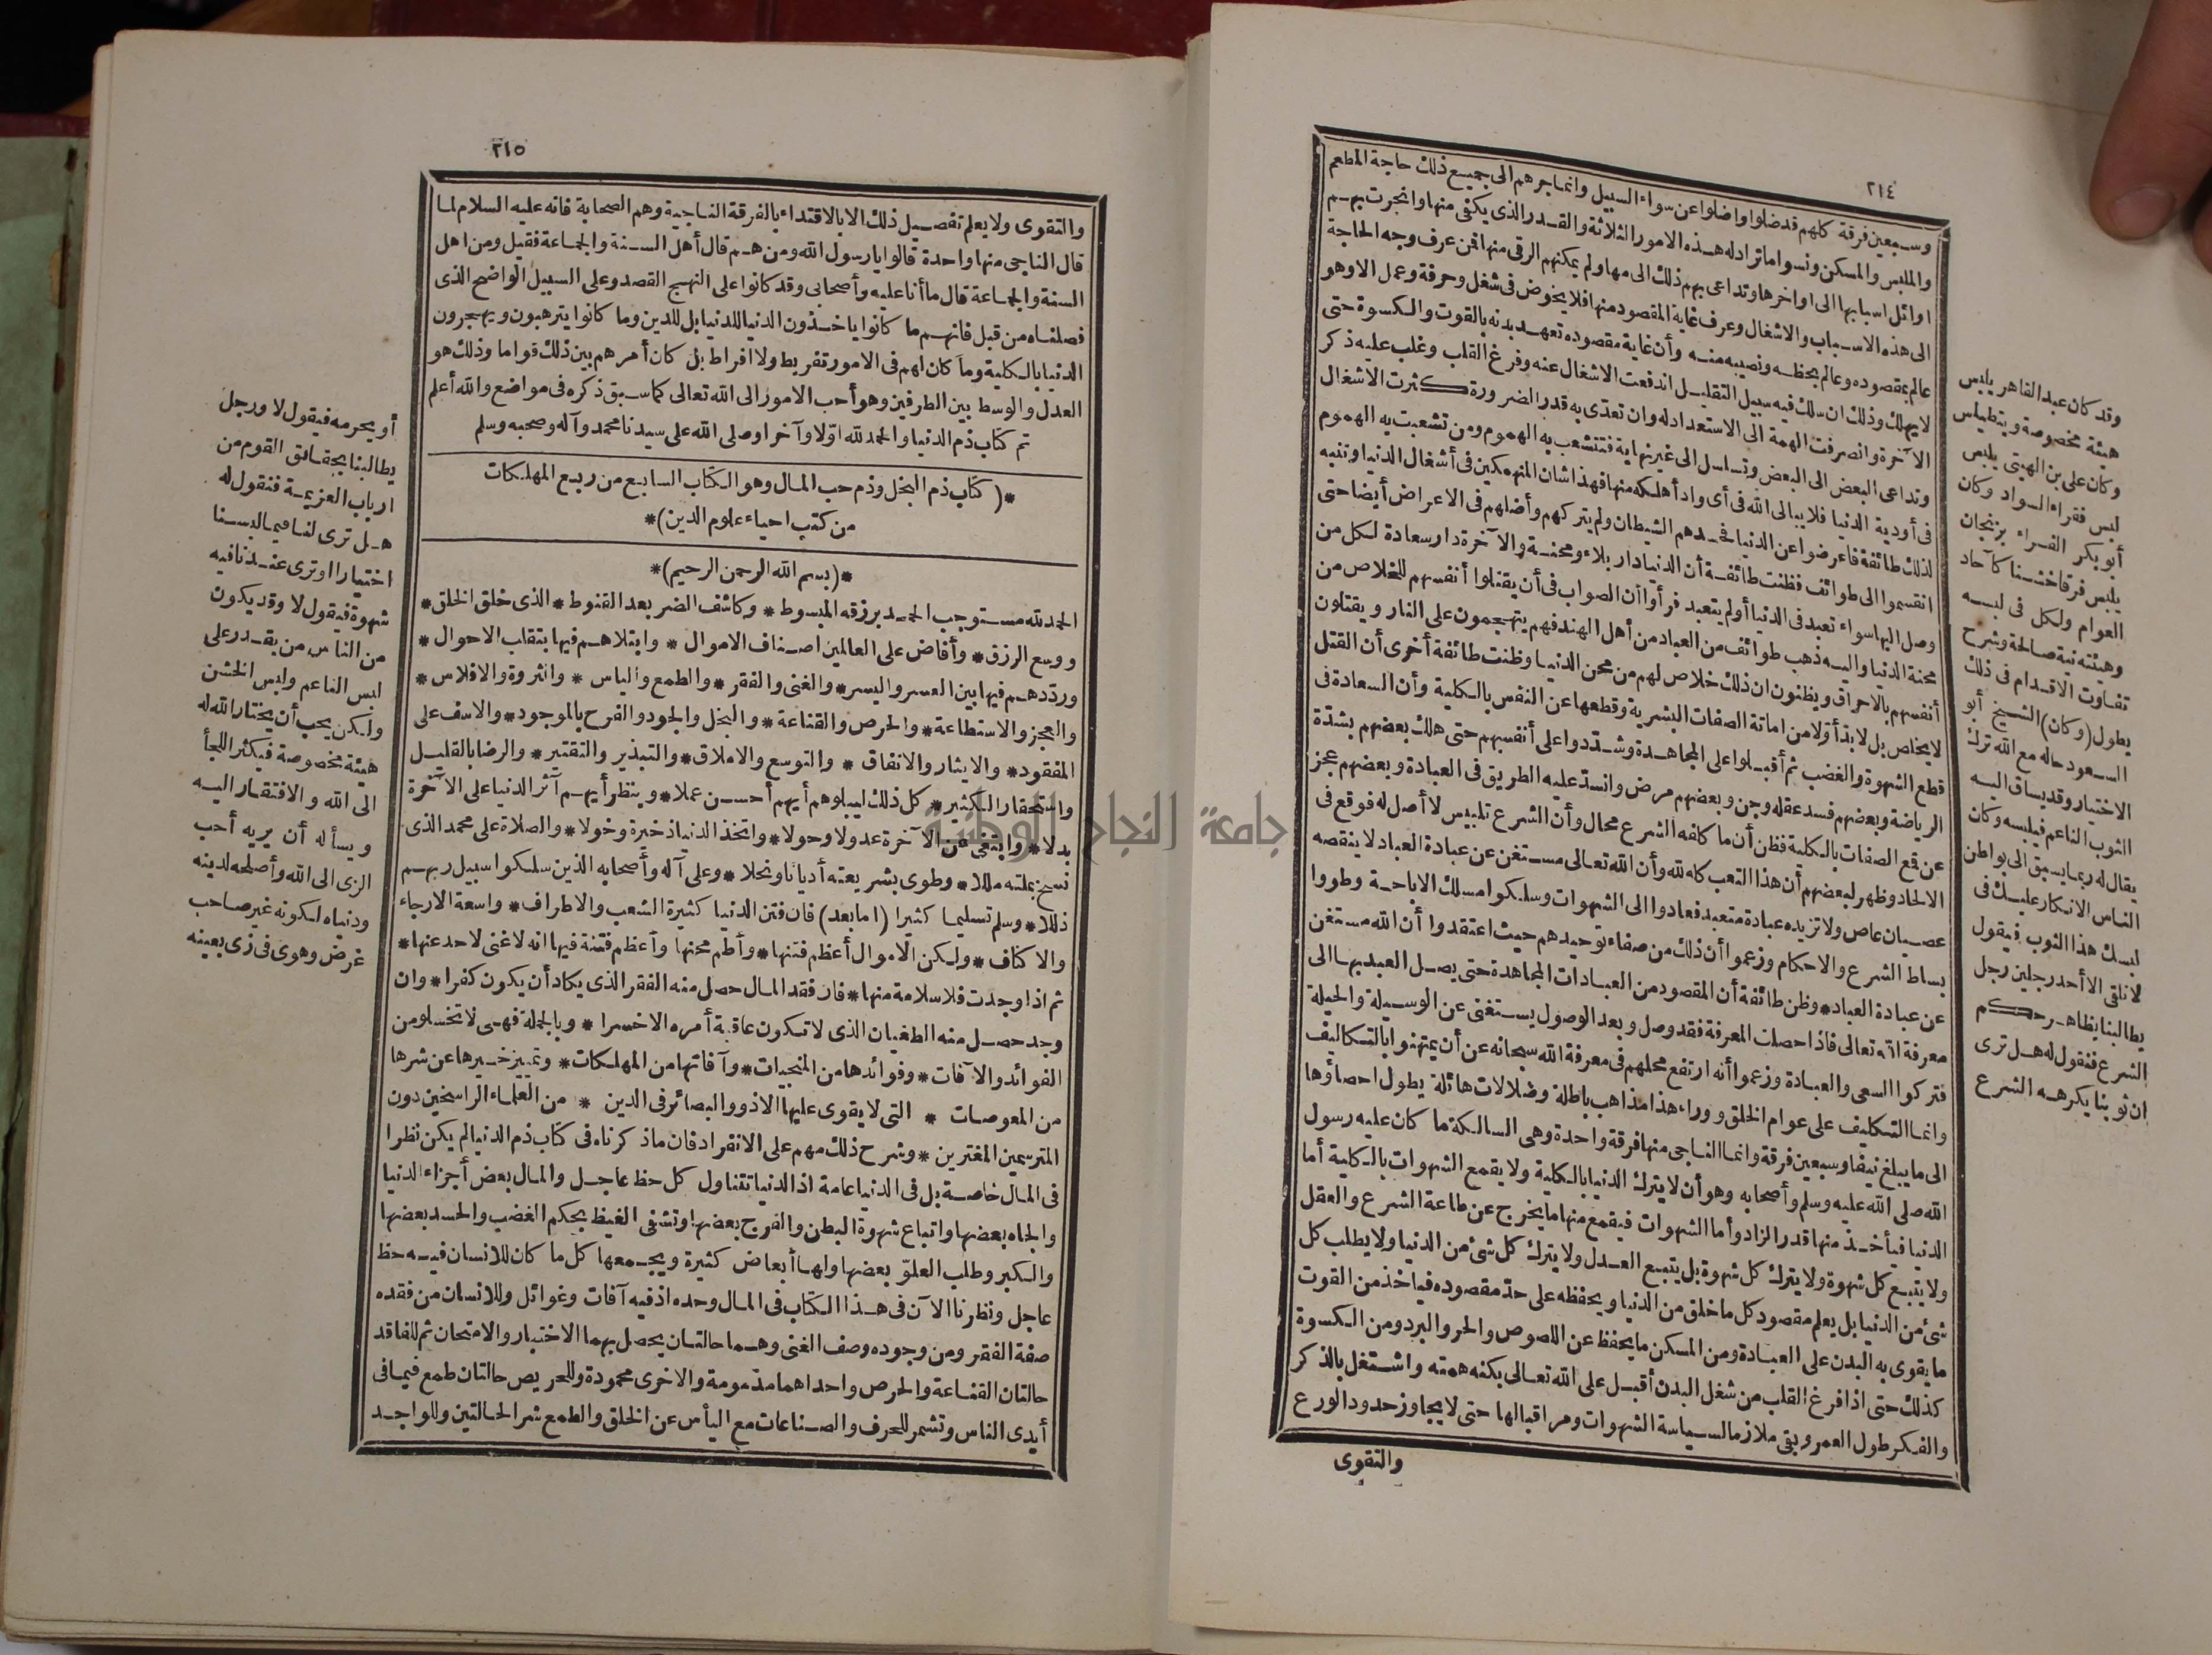 ٢١٤
وسبعين فرقة كلهم قد ضلوا واضلوا عن سواء السبيل وانما جرهم الى جميع ذلك حاجة المطعم
والملبس والمسكن ونسوا ما تراد له هذه الامور الثلاثة والقدر الذى يكفى منها وانجرت بهم
اوائل اسبابها الى اواخرها وتداعى بهم ذلك الى مهاو لم يمكنهم الرقى منها فمن عرف وجه الحاجة
الى هذه الاسباب والاشغال وعرف غاية المقصود منها فلا يخوض فى شغل وحرفة وعمل الا وهو
عالم بمقصوده وعالم بحظه ونصيبه منه وأن غاية مقصوده تعهد بدنه بالقوت والكسوة حتى
لا يهلك وذلك ان سلك فيه سبيل التقليل اندفعت الاشغال عنه وفرغ القلب وغلب عليه ذكر
الآخرة وانصرفت الهمة الى الاستعداد له وان تعدّى به قدر الضرورة كثرت الاشغال
وتداعى البعض الى البعض وتسلسل الى غير نهاية فتتشعب به الهموم ومن تشعبت به الهموم
فى أودية الدنيا فلا يبالى الله فى أى واد أهلكه منها فهذا شان المنهمكين فى أشغال الدنيا وتنبه
لذلك طائفة فاعرضوا عن الدنيا فحسدهم الشيطان ولم يتركهم وأضلهم فى الاعراض أيضا حتى
انقسموا الى طوائف فظنت طائفة أن الدنيا دار بلاء ومحنة والآخرة دار سعادة لكل من
وصل اليها سواء تعبد فى الدنيا أو لم يتعبد فرأوا أن الصواب فى أن يقتلوا أنفسهم للخلاص من
محنة الدنيا واليه ذهب طوائف من العباد من أهل الهند فهم يتهجمون على النار ويقتلون
أنفسهم بالاحراق ويظنون ان ذلك خلاص لهم من محن الدنيا وظنت طائفة أخرى أن القتل
لا يخلص بل لا بدّ أوّلا من اماتة الصفات البشرية وقطعها عن النفس بالكلية وأن السعادة فى
قطع الشهوة والغضب ثم أقبلوا على المجاهدة وشدّدوا على أنفسهم حتى هلك بعضهم بشدّة
الرياضة وبعضهم فسد عقله وجن وبعضهم مرض وانسدّ عليه الطريق فى العبادة وبعضهم عجز
عن قمع الصفات بالكلية فظن أن ما كلفه الشرع محال وأن الشرع تلبيس لا أصل له فوقع فى
الالحاد وظهر لبعضهم أن هذا التعب كله لله وأن الله تعالى مستغن عن عبادة العباد لا ينقصه
عصيان عاص ولا تزيده عبادة متعبد فعادوا الى الشهوات وسلكوا مسلك الاباحة وطووا
بساط الشرع والاحكام وزعموا أن ذلك من صفاء توحيدهم حيث اعتقدوا أن الله مستغن
عن عبادة العباد * وظن طائفة أن المقصود من العبادات المجاهدة حتى يصل العبد بها الى
معرفة الله تعالى فاذا حصلت المعرفة فقد وصل وبعد الوصول يستغنى عن الوسيلة والحيلة
فتركوا السعى والعبادة وزعموا أنه ارتفع محلهم فى معرفة الله سبحانه عن أن يمتهنوا بالتكاليف
وانما التكليف على عوام الخلق ووراء هذا مذاهب باطلة وضلالات هائلة يطول احصاؤها
الى ما يبلغ نيفا وسبعين فرقة وانما الناجى منها فرقة واحدة وهى السالكة ما كان عليه رسول
الله صلى الله عليه وسلم وأصحابه وهو أن لا يترك الدنيا بالكلية ولا يقمع الشهوات بالكلية أما
الدنيا فيأخذ منها قدر الزاد وأما الشهوات فيقمع منها ما يخرج عن طاعة الشرع والعقل
ولا يتبع كل شهوة ولا يترك كل شهوة بل يتبع العدل ولا يترك كل شئ من الدنيا ولا يطلب كل
شئ من الدنيا بل يعلم مقصود كل ما خلق من الدنيا ويحفظه على حدّ مقصوده فياخذ من القوت
ما يقوى به البدن على العبادة ومن المسكن ما يحفظ عن اللصوص والحر والبرد ومن الكسوة
كذلك حتى اذا فرغ القلب من شغل البدن أقبل على الله تعالى بكنه همته واشتغل بالذكر
والفكر طول العمر وبقى ملازما لسياسة الشهوات ومراقبا لها حتى لا يجاوز حدود الورع
والتقوى
وقد كان عبد القاهر يلبس
هيئة مخصوصة ويتطيلس
وكان على بن الهيتى يلبس
لبس فقراء السواد وكان
أبو بكر الفراء بزنجان
يلبس فرقا خشنا كآحاد
العوام ولكل فى لبسه
وهيئته نية صالحة وشرح
تفاوت الاقدام فى ذلك
يطول (وكان) الشيخ أبو
السعود حاله مع الله ترك
الاختيار وقد يساق اليه
الثوب الناعم فيلبسه وكان
يقال له ربما يسبق الى بواطن
الناس الانكار عليك فى
لبسك هذا الثوب فيقول
لا نلقى الا أحد رجلين رجل
يطالبنا بظاهر حكم
الشرع فنقول له هل ترى
ان ثوبنا يكرهه الشرع
٢١٥
والتقوى ولا يعلم تفصيل ذلك الا بالاقتداء بالفرقة الناجية وهم الصحابة فانه عليه السلام لما
قال الناجى منها واحدة قالوا يا رسول الله ومن هم قال أهل السنة والجماعة فقيل ومن اهل
السنة والجماعة قال ما أنا عليه وأصحابى وقد كانوا على النهج القصد وعلى السبيل الواضح الذى
فصلناه من قبل فانهم ما كانوا ياخذون الدنيا للدنيا بل للدين وما كانوا يترهبون ويهجرون
الدنيا بالكلية وما كان لهم فى الامور تفريط ولا افراط بل كان أمرهم بين ذلك قواما وذلك هو
العدل والوسط بين الطرفين وهو أحب الامور الى الله تعالى كما سبق ذكره فى مواضع والله أعلم
تم كتاب ذم الدنيا والحمد لله اوّلا وآخرا وصلى الله على سيدنا محمد وآله وصحبه وسلم
*(كتاب ذم البخل وذم حب المال وهو الكتاب السابع من ربع المهلكات
من كتب احياء علوم الدين)*
*(بسم الله الرحمن الرحيم)*
الحمد لله مستوجب الحمد برزقه المبسوط * وكاشف الضر بعد القنوط * الذى خلق الخلق *
ووسع الرزق * وأفاض على العالمين اصناف الاموال * وابتلاهم فيها بتقلب الاحوال *
وردّدهم فيها بين العسر واليسر * والغنى والفقر * والطمع والياس * والثروة والافلاس *
والعجز والاستطاعة * والحرص والقناعة * والبخل والجود والفرح بالموجود * والاسف على
المفقود * والايثار والانفاق * والتوسع والاملاق * والتبذير والتقتير * والرضا بالقليل
واستحقار الكثير * كل ذلك ليبلوهم أيهم أحسن عملا * وينظر أيهم آثر الدنيا على الآخرة
بدلا * وابتغى عن الآخرة عدولا وحولا * واتخذ الدنيا ذخيرة وخولا * والصلاة على محمد الذى
نسخ بملته مللا * وطوى بشريعته أديانا ونحلا * وعلى آله وأصحابه الذين سلكوا سبيل ربهم
ذللا * وسلم تسليما كثيرا (اما بعد) فان فتن الدنيا كثيرة الشعب والاطراف * واسعة الارجاء
والاكناف * ولكن الاموال أعظم فتنها * وأطم محنها وأعظم فتنة فيها انه لا غنى لاحد عنها *
ثم اذا وجدت فلا سلامة منها * فان فقد المال حصل منه الفقر الذى يكاد أن يكون كفرا * وان
وجد حصل منه الطغيان الذى لا تكون عاقبة أمره الا خسرا * وبالجملة فهى لا تخلو من
الفوائد والآفات * وفوائدها من المنجيات * وآفاتها من المهلكات * وتمييز خيرها عن شرها
من المعوصات * التى لا يقوى عليها الا ذوو البصائر فى الدين * من العلماء الراسخين دون
المترسمين المغترين * وشرح ذلك مهم على الانفراد فان ما ذكرناه فى كتاب ذم الدنيا لم يكن نظرا
فى المال خاصة بل فى الدنيا عامة اذ الدنيا تتناول كل حظ عاجل والمال بعض أجزاء الدنيا
والجاه بعضها واتباع شهوة البطن والفرج بعضها وتشفى الغيظ بحكم الغضب والحسد بعضها
والكبر وطلب العلوّ بعضها ولها أبعاض كثيرة ويجمعها كل ما كان للانسان فيه حظ
عاجل ونظرنا الآن فى هذا الكتاب فى المال وحده اذ فيه آفات وغوائل وللانسان من فقده
صفة الفقر ومن وجوده وصف الغنى وهما حالتان يحصل بهما الاختبار والامتحان ثم للفاقد
حالتان القناعة والحرص واحداهما مذمومة والاخرى محمودة وللحريص حالتان طمع فيما فى
أيدى الناس وتشمر للحرف والصناعات مع اليأس عن الخلق والطمع شر الحالتين وللواجد
أو يحرمه فيقول لا ورجل
يطالبنا بحقائق القوم من
ارباب العزيمة فنقول له
هل ترى لنا فيما لبسنا
اختيارا او ترى عندنا فيه
شهوة فيقول لا وقد يكون
من الناس من يقدر على
لبس الناعم ولبس الخشن
ولكن يحب أن يختار الله له
هيئة مخصوصة فيكثر اللجأ
الى الله والافتقار اليه
ويسأله أن يريه أحب
الزى الى الله وأصلحه لدينه
ودنياه لكونه غير صاحب
غرض وهوى فى زى بعينه
جامعة النجاح الوطنية